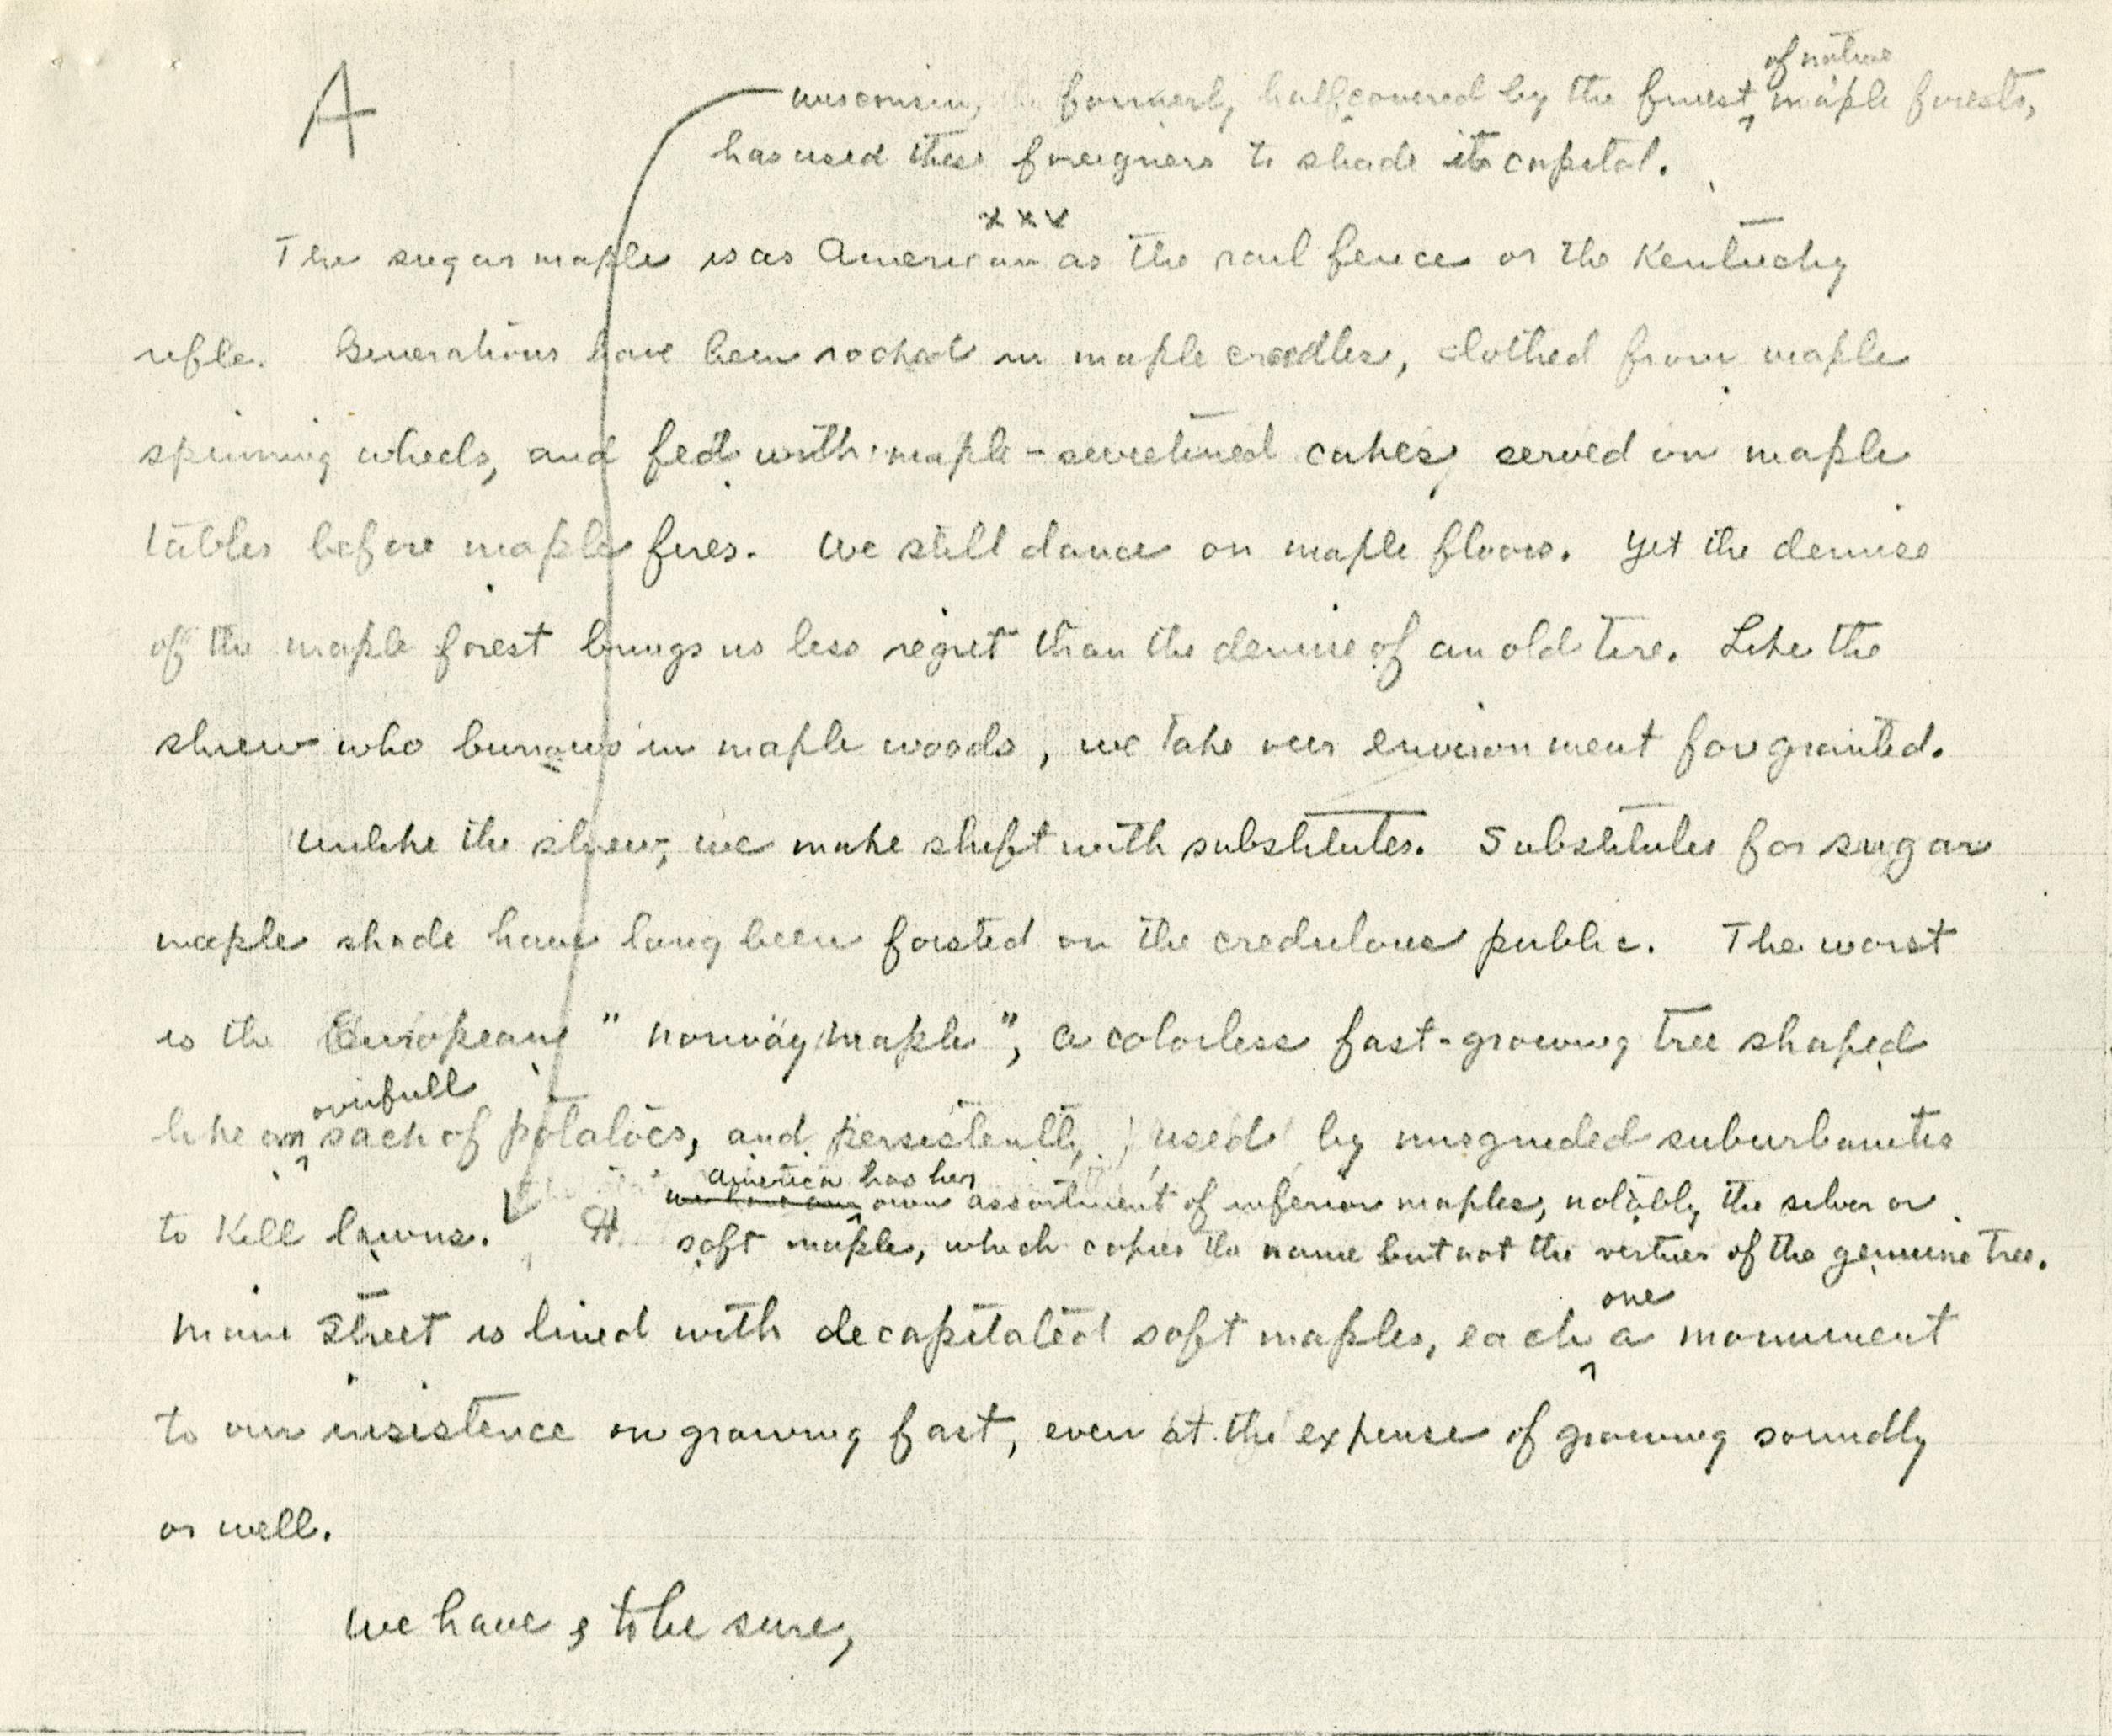 A
of nature
Wisconsin, formerly half covered by the finest maple forests,
has used these foreigners to shade its capitol.
x x x
The sugar maple is as American as the rail fence or the Kentucky
rifle. Generations have been rocked in maple cradles, clothed from maple
spinning wheels, and fed with maple-sweetened cakes served on maple
tables before maple fires. We still dance on maple floors. Yet the demise
of the maple forest brings us less regret than the demise of an old tire. Like the
shrew who burrows in maple woods, we take our environment for granted.
Unlike the shrew, we make shift with substitutes. Substitutes for sugar
maple shade have long been foisted on the credulous public. The worst
is the European "Norway maple", a colorless fast-growing tree shaped
overfull
like an sack of potatoes, and persistently used by misguided suburbanites
America has her
to kill lawns. ¶ we have our own assortment of inferior maples, notably the silver or
soft maple, which copies the name but not the virtues of the genuine tree.
one
Main Street is lined with decapitated soft maples, each a monument
to our insistence on growing fast, even at the expense of growing soundly
or well.
We have, to be sure,